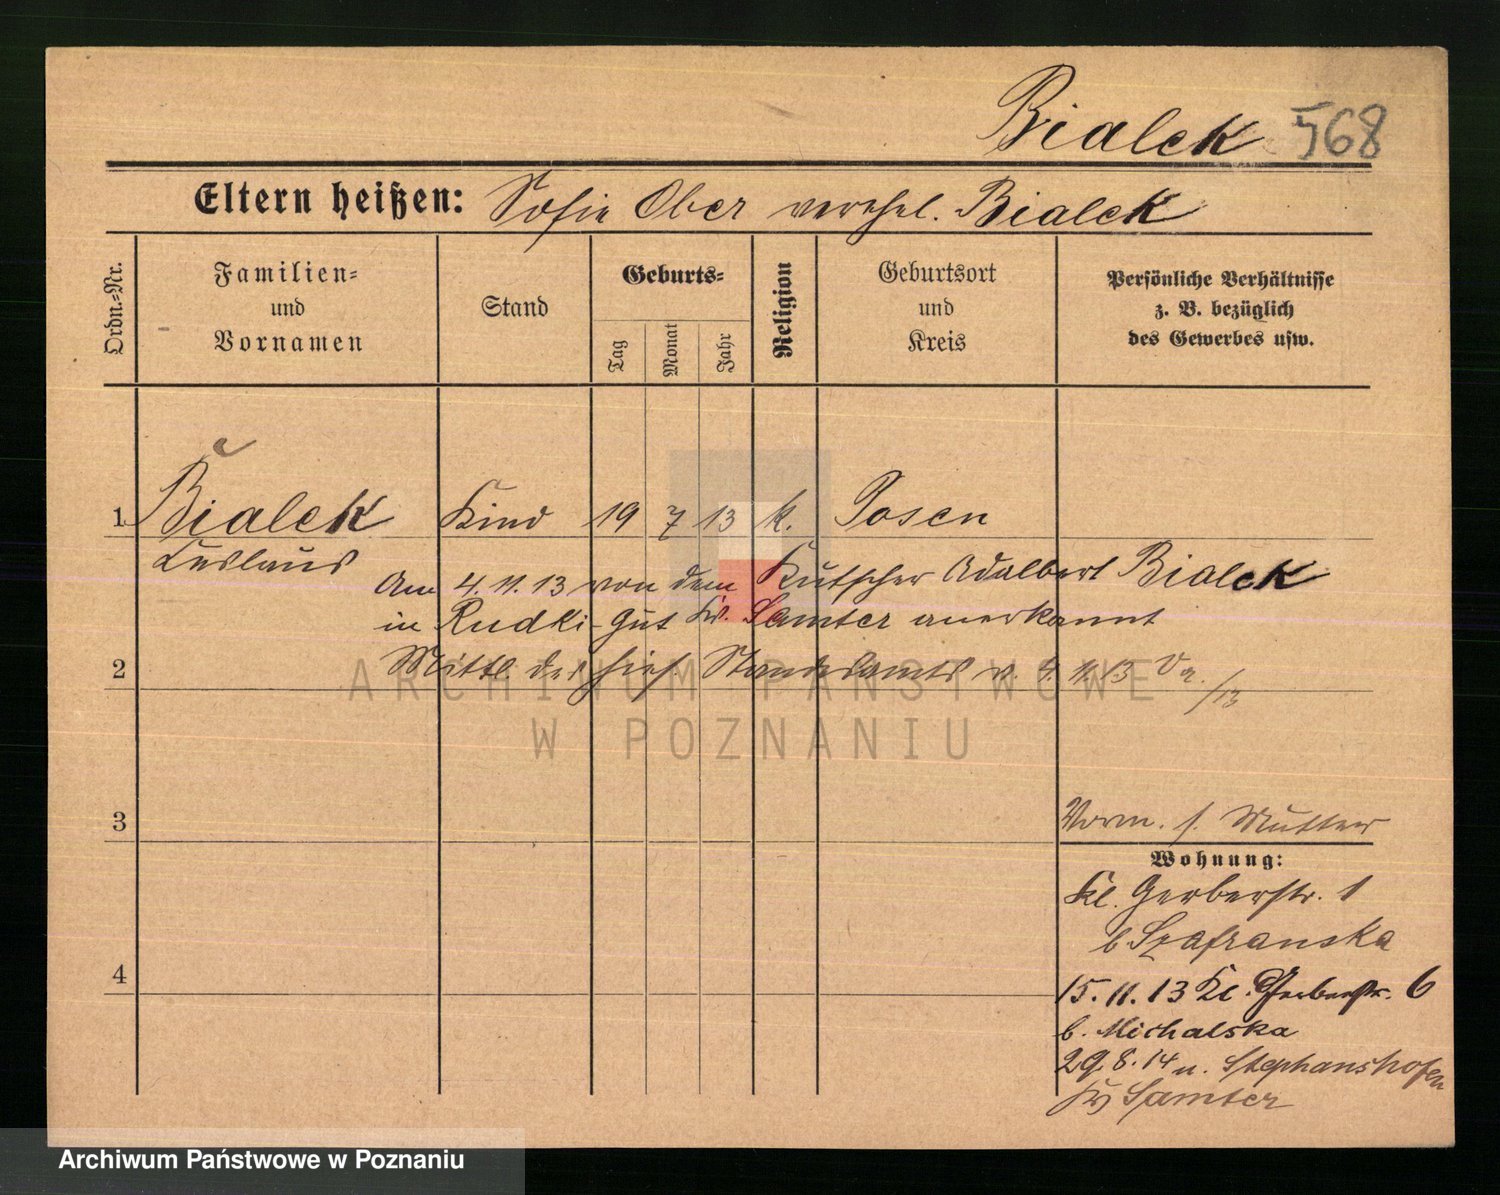 Bialek 568
Eltern heißen: Sofie Ober verehel. Bialek
Ordn.-Nr.
Familien-
und
Vornamen
Stand
Geburts-
Tag
Monat
Jahr
Religion
Geburtsort
und
Kreis
Persönliche Verhältnisse
z. B. bezüglich
des Gewerbes usw.
1 Bialek Kind 19 7 13 k. Posen
Am 4.11.13 von dem Kutscher Adalbert Bialek
in Rudki-Gut Kr. Samter anerkannt
2 Mittl. des hies. Standesamts v. 4.11.13
/13
3
Vorm. s. Mutter
Wohnung:
Kl. Gerberstr. 1
b Szafranska
4
15.11.13 Kl. Gerberstr. 6
b. Michalska
29.8.14 n. Stephanshofen
Kr Samter
ARCHIWUM PAŃSTWOWE
W POZNANIU
Archiwum Państwowe w Poznaniu